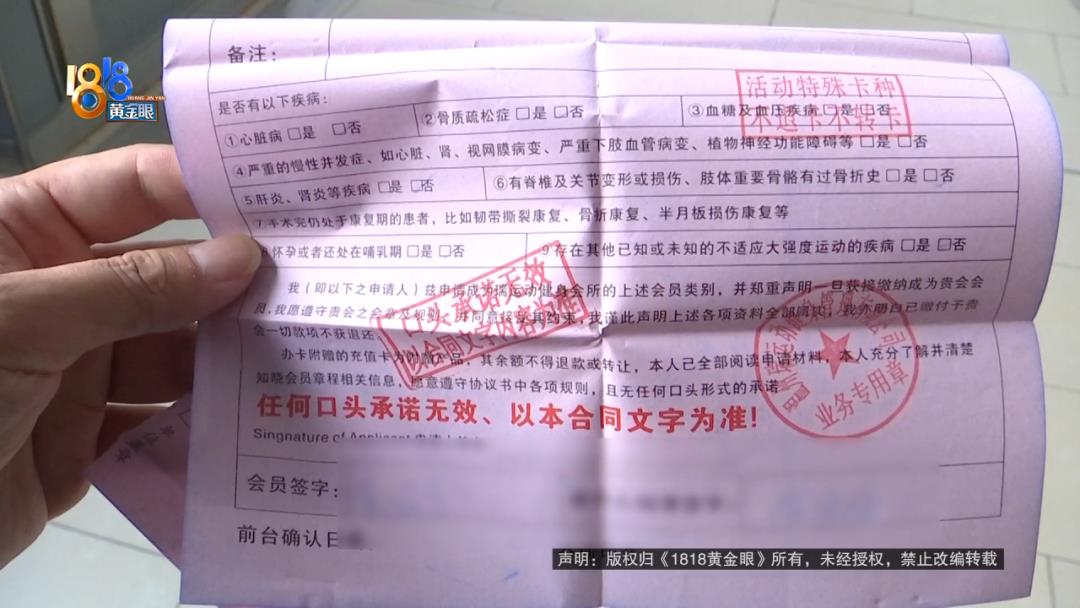 1818
黄金眼
备注:
是否有以下疾病:
①心脏病 □是 □否
②骨质疏松症 □是 □否
③血糖及血压疾病 □是 □否
④严重的慢性并发症、如心脏、肾、视网膜病变、严重下肢血管病变、植物神经功能障碍等 □是 □否
⑤肝炎、肾炎等疾病 □是 □否
⑥有脊椎及关节变形或损伤、肢体重要骨骼有过骨折史 □是 □否
7手术完仍处于康复期的患者，比如韧带撕裂康复、骨折康复、半月板损伤康复等
怀孕或者还处在哺乳期 □是 □否
9存在其他已知或未知的不适应大强度运动的疾病 □是 □否
活动特殊卡种
不退卡不转卡
我（即以下之申请人）兹申请成为 运动健身会所的上述会员类别，并郑重声明一旦获接缴纳成为贵会会
员，我愿遵守贵会之会章及规则，并同意接 其约束，我谨此声明上述各项资料全部属实，我亦明白已缴付予贵
会一切款项不获退还
办卡附赠的充值卡为附赠产品，其余额不得退款或转让，本人已全部阅读申请材料，本人充分了解并清楚
知晓会员章程相关信息，愿意遵守协议书中各项规则，且无任何口头形式的承诺
口头承诺无效
以合同文字内容为准
业务专用章
任何口头承诺无效、以本合同文字为准!
Singnature of Applicant
会员签字:
前台确认日
声明：版权归《1818黄金眼》所有，未经授权，禁止改编转载